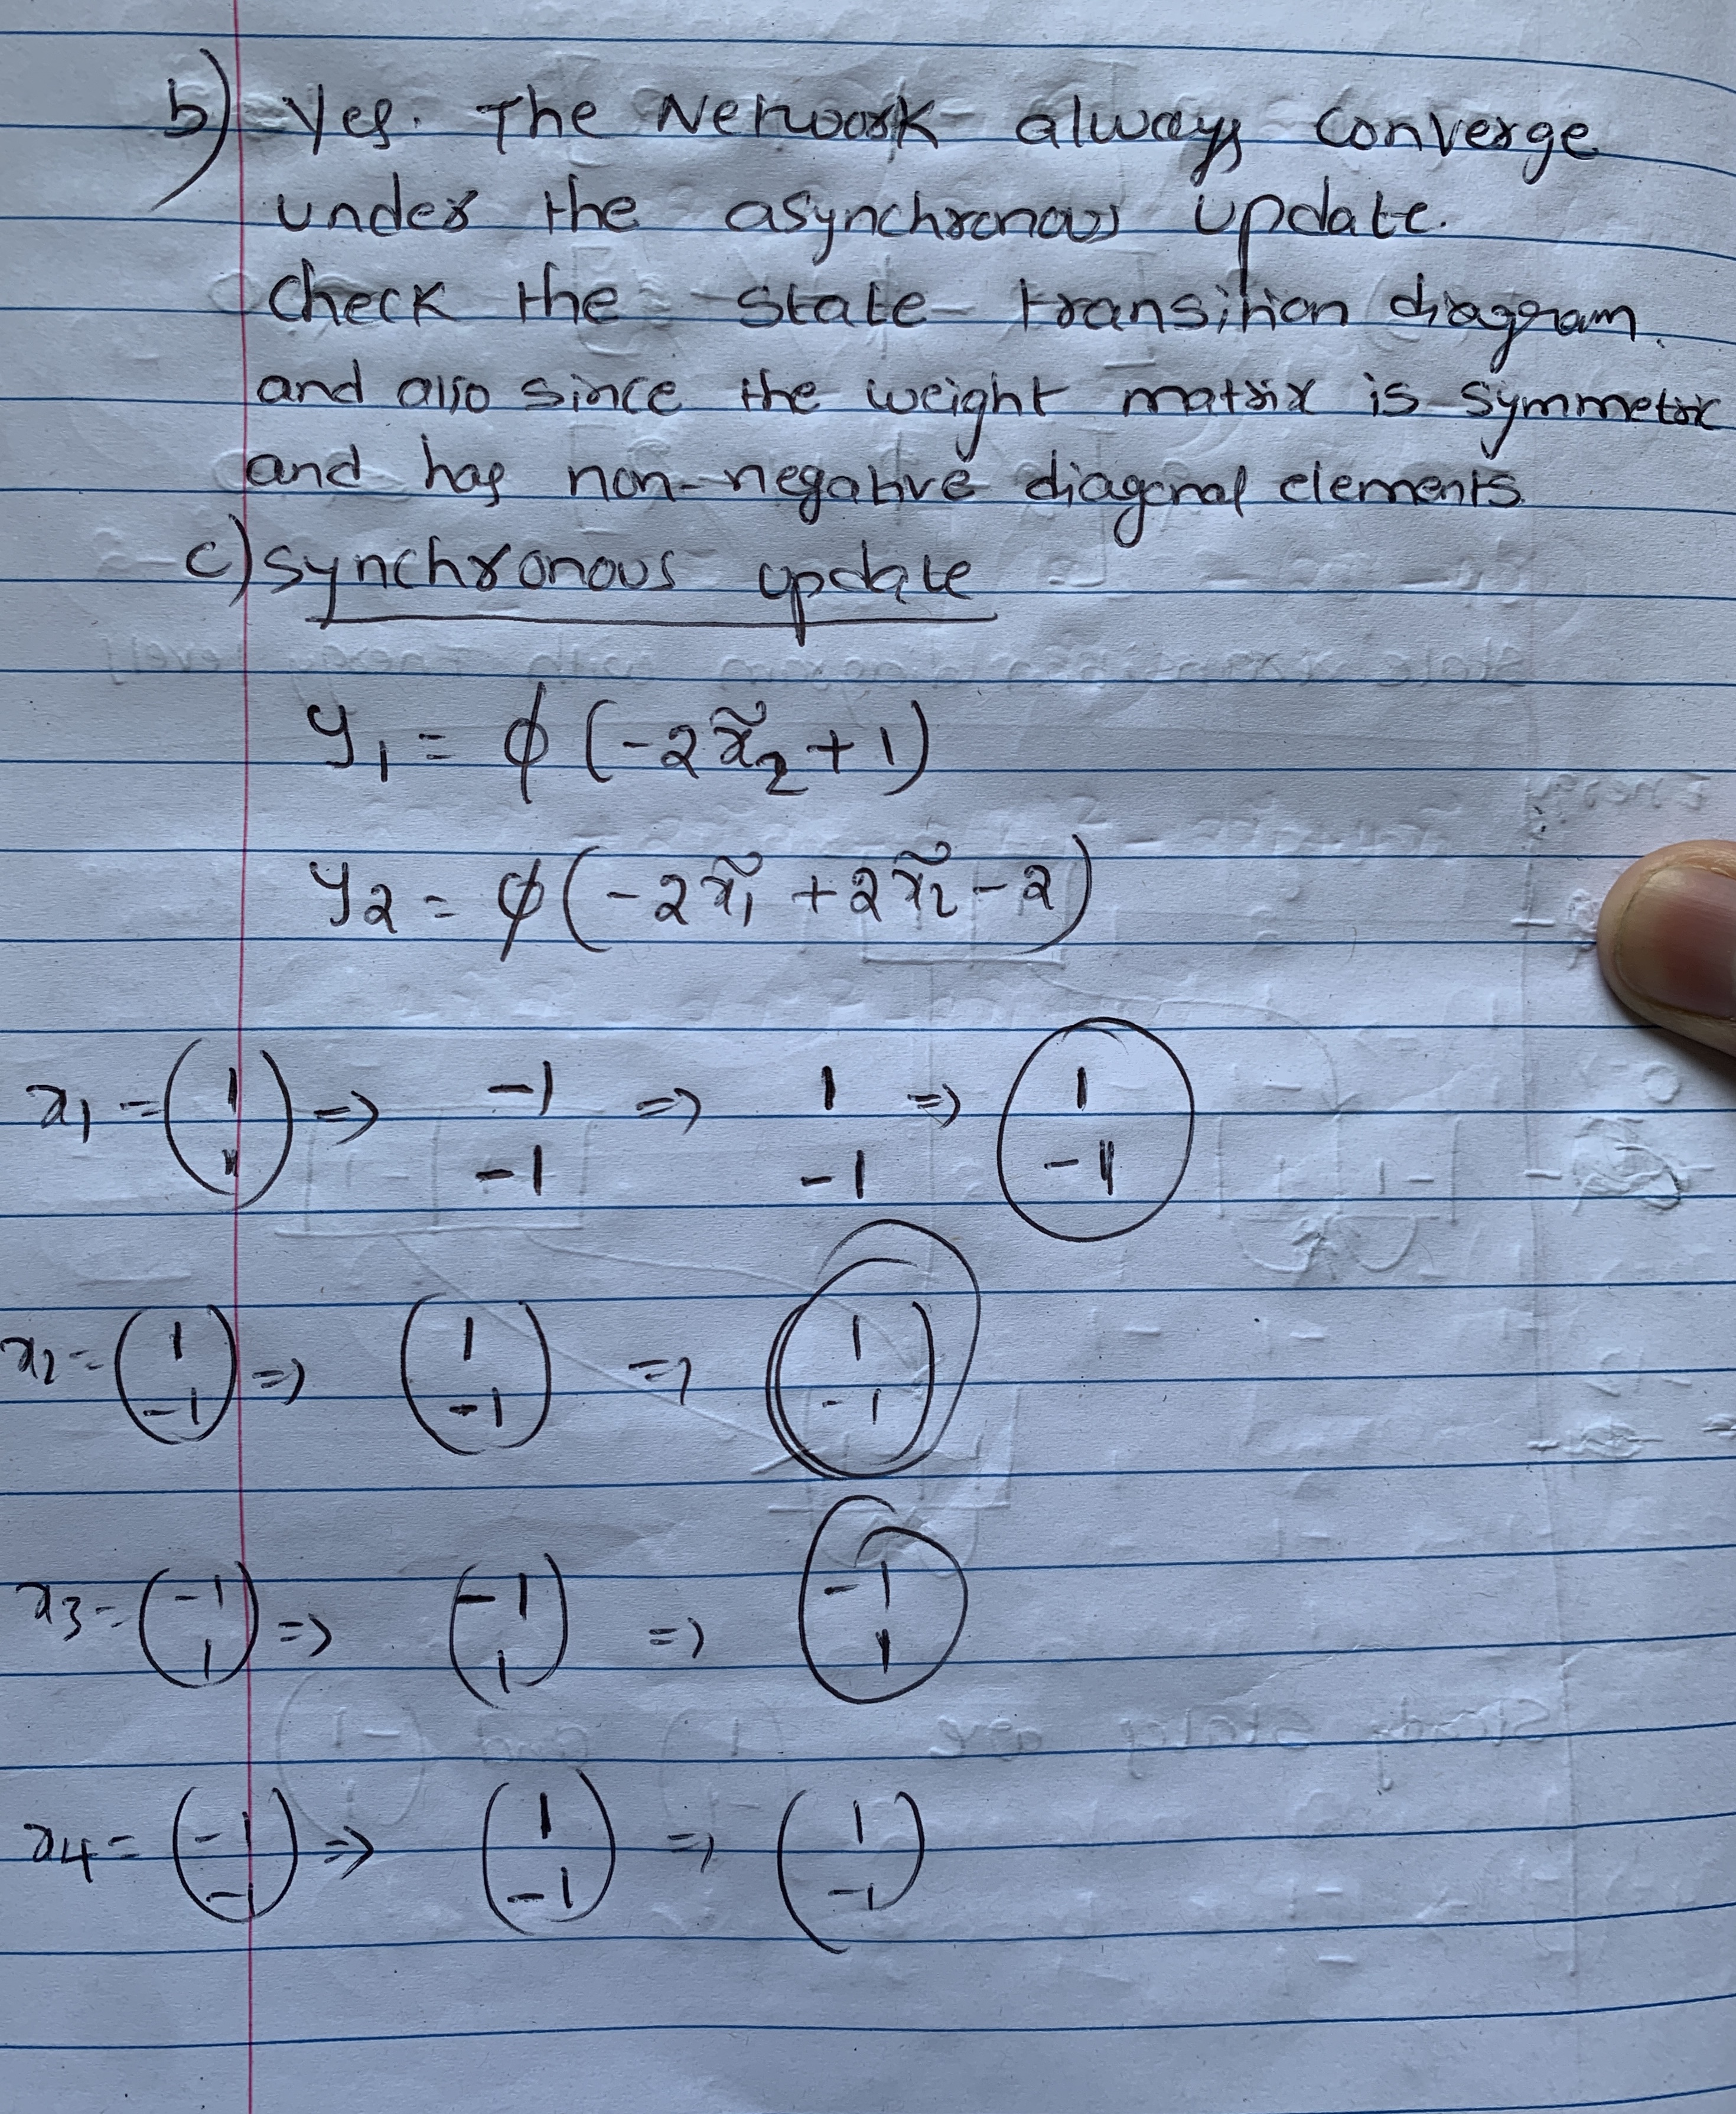 b) Yes. The Network always converge
under the asynchronous update.
check the state transition diagram.
and also since the weight matrix is symmetric
and has non-negative diagonal elements.
c) synchronous update
y₁ = ϕ (-2x̃₂ + 1)
y₂ = ϕ (-2x̃₁ + 2x̃₂ - 2)
x₁ = (1 1) => -1 -1 => 1 -1 => 1 -1
x₂ = (1 -1) => (1 -1) => (1 -1)
x₃ = (-1 1) => (-1 1) => -1 1
x₄ = (-1 -1) => (1 -1) => (1 -1)